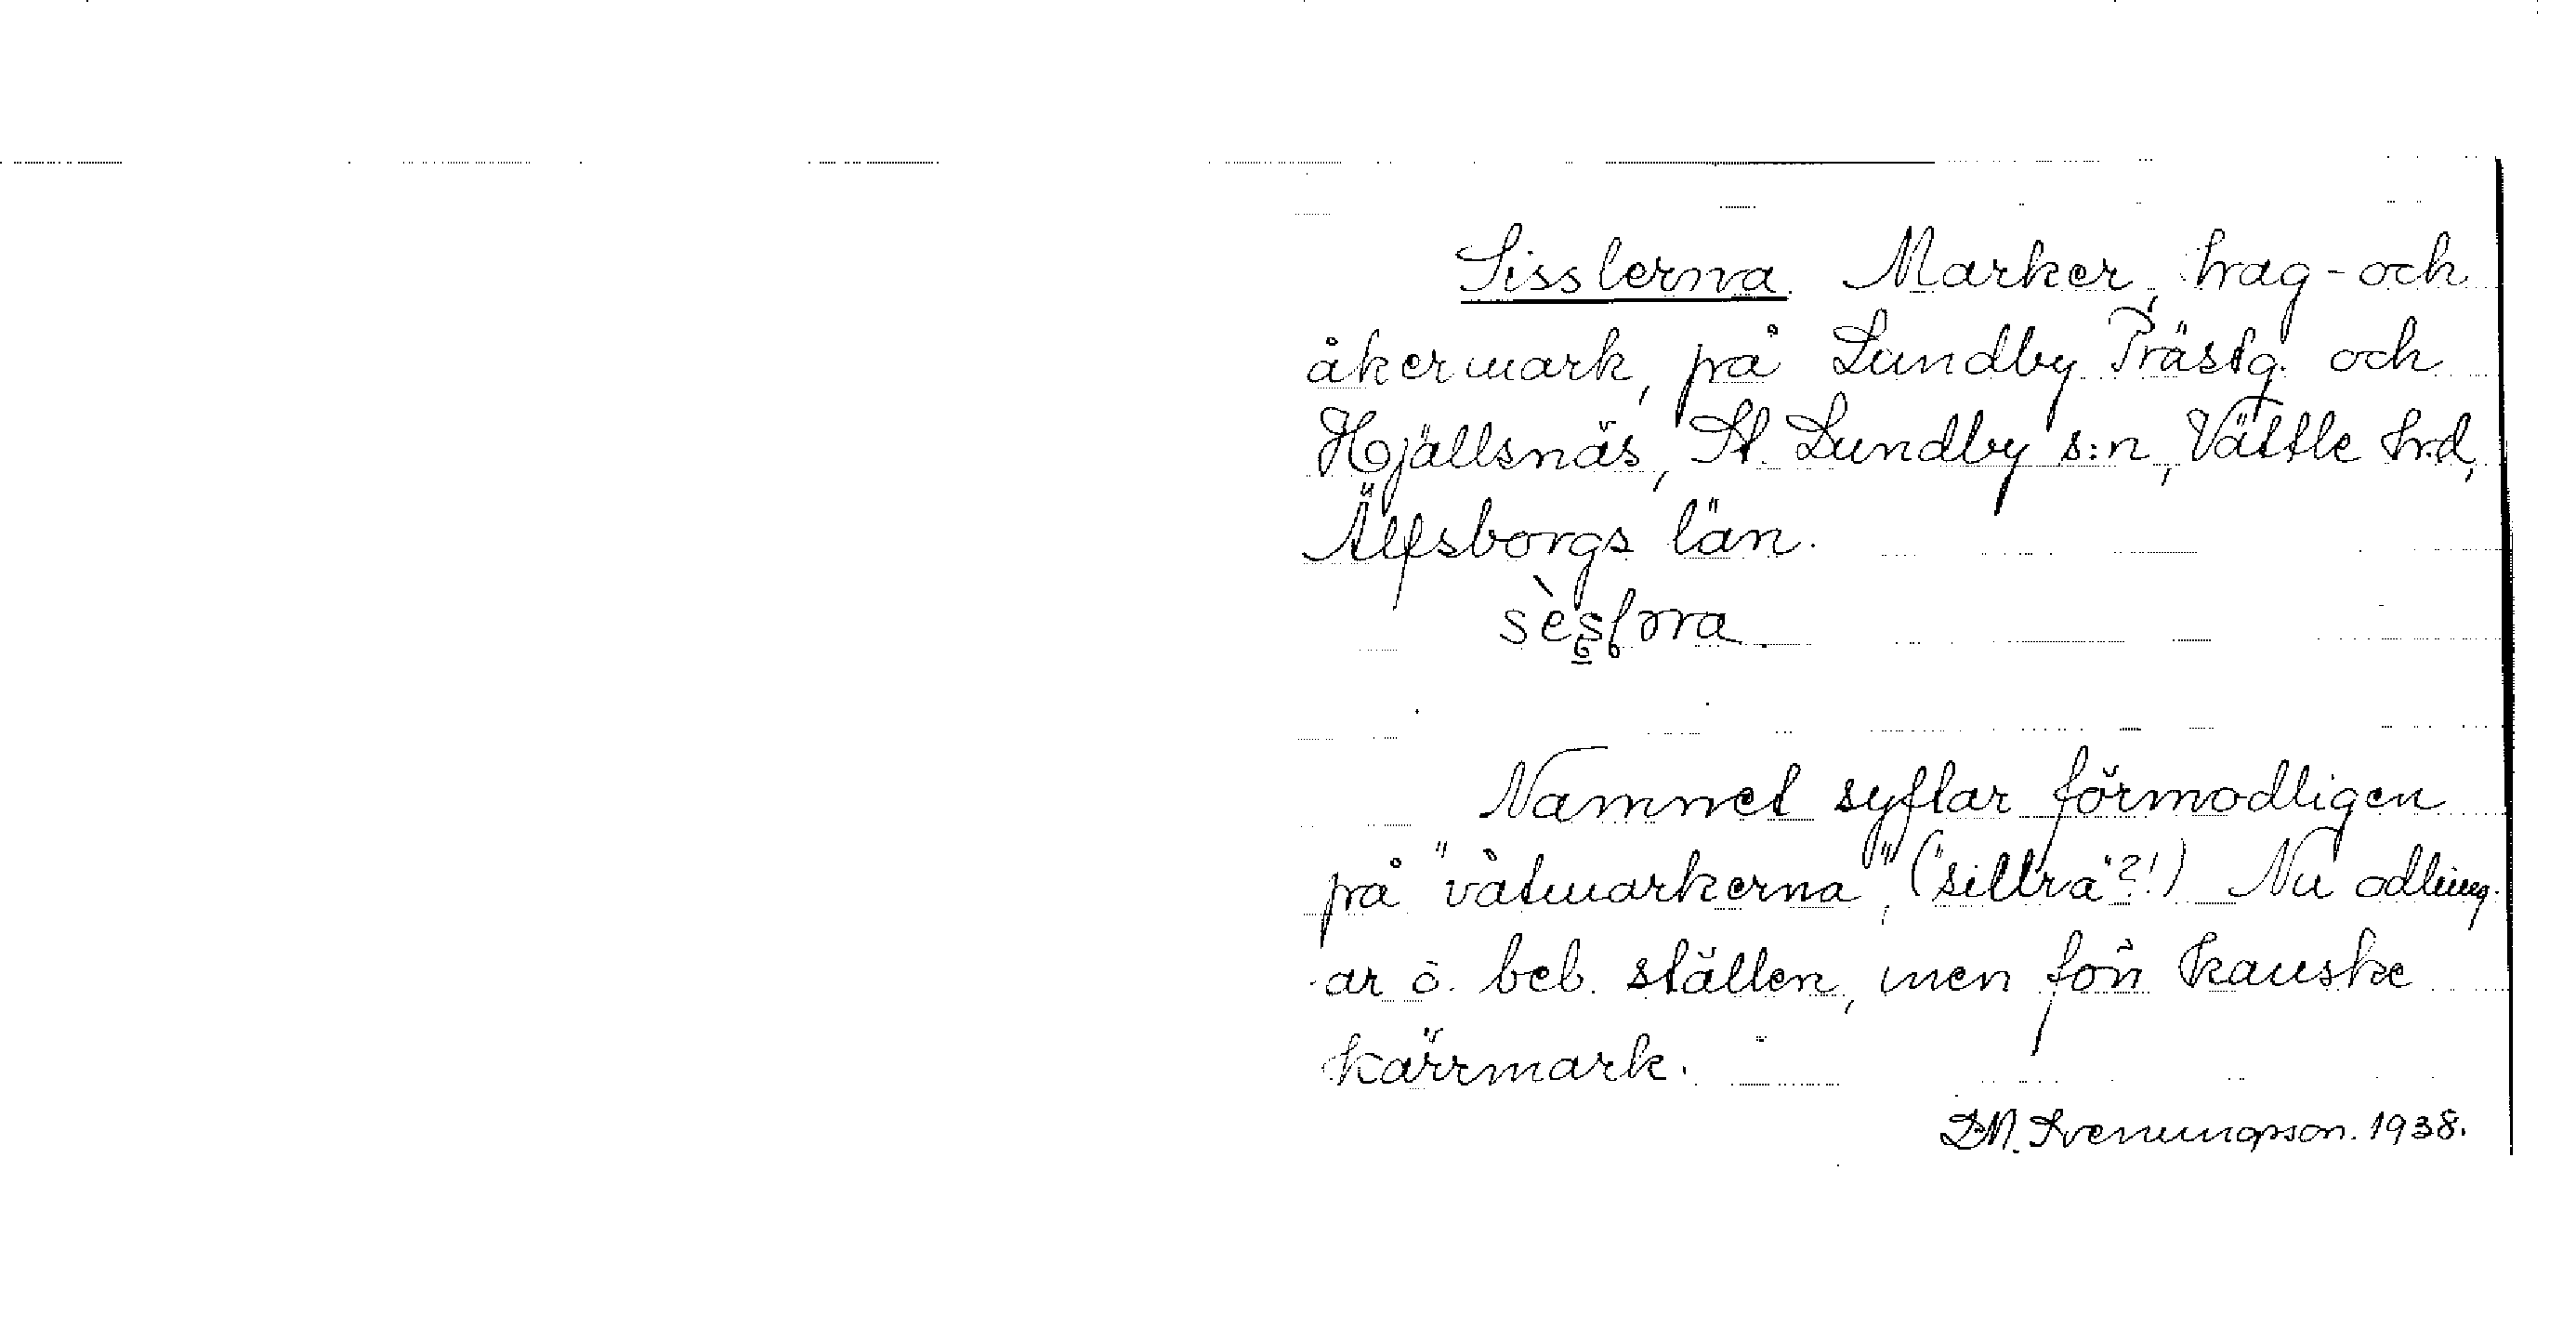 Sisslerna. Marker, hag- och
åkermark, på Lundby Prästg. och
Hjällsnäs, St. Lundby s:n, Vättle hrd,
Älfsborgs län.
Namnet syftar förmodligen
på "våtmarkerna", ("sittra"?!) Nu odling-
ar o. beb. ställen, men förr kanske
kärrmark.
D.M. Svenungsson. 1938.